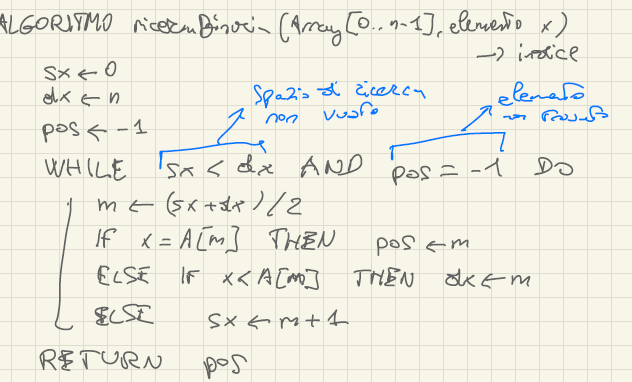 ALGORITMO ricercaBinaria (Array [0..n-1], elemento x)
→ indice
sx ← 0
dx ← n
pos ← -1
spazio di ricerca
non vuoto
elemento
non trovato
WHILE sx < dx AND pos = -1 DO
m ← (sx+dx)/2
IF x = A[m] THEN pos ← m
ELSE IF x < A[m] THEN dx ← m
ELSE sx ← m+1
RETURN pos